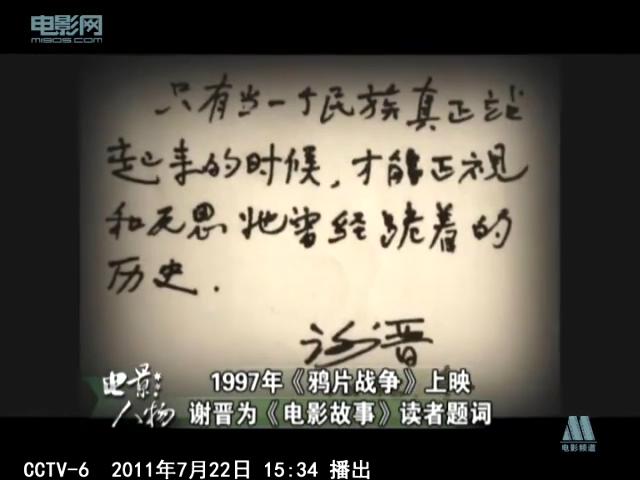 电影网
M1905.COM
只有当一个民族真正站
起来的时候,才能正视
和反思她曾经跪着的
历史.
谢晋
电影人物
1997年《鸦片战争》上映
谢晋为《电影故事》读者题词
电影频道
CCTV-6 2011年7月22日 15:34 播出